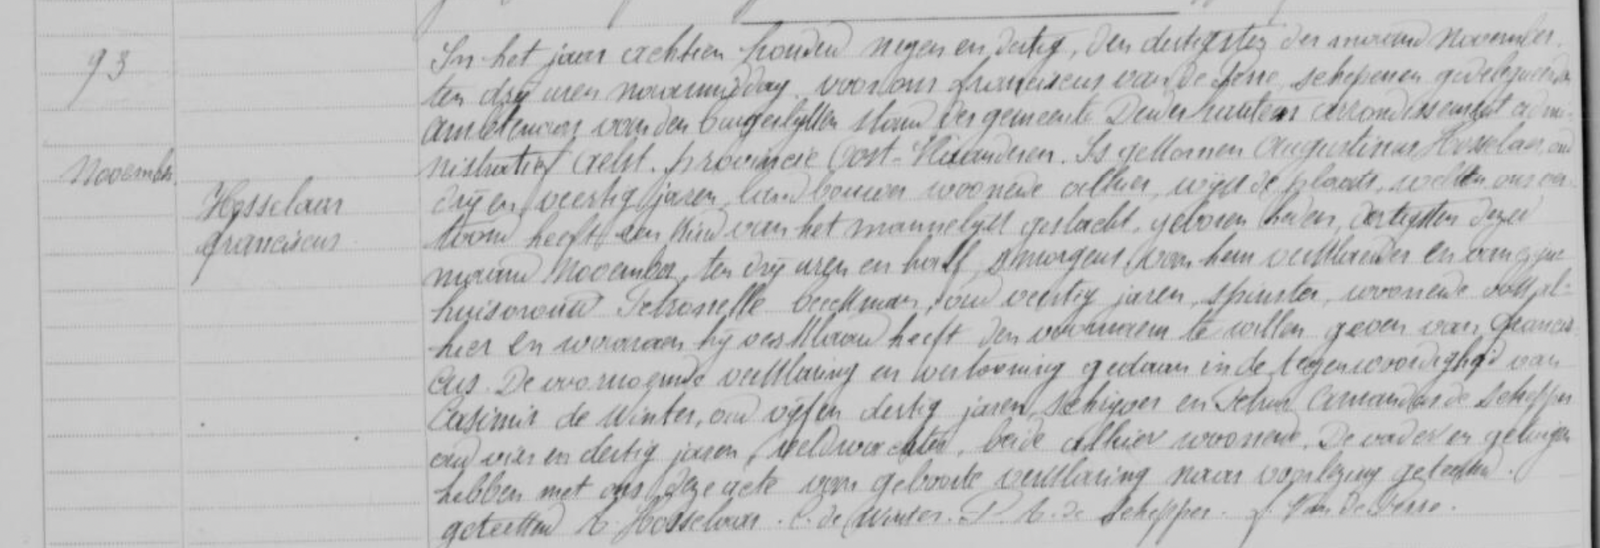 93
Novemb.
Hosselaer
Franciscus
In het jaar achtien honderd negen en dertig, den dertigsten der maand November,
ten drij uren naarmiddag, voor ons Franciscus van de Perre, schepenen gedelegueerden
ambtenaar van den burgerlijken stand der gemeente Denderhautem arrondissement admi-
nistratief Aelst, provincie Oost-Vlaanderen. Is gekomen Augustinus Hosselaer, oud
drij en veertig jaren, landbouwer woonende alhier, wijk de plaats, welken ons ver-
toond heeft een kind van het mannelijk geslacht, geboren heden, dertigsten dezer
maand November, ten drij uren en half, smorgens, van hem verklaerder en van zijne
huisvrouw Petronelle beeckman, oud veertig jaren, spinster, woonende ook al-
hier en waaraen hij verklaard heeft den voornaem te willen geven van Francis-
cus. De voornoemde verklaring en vertooning gedaan in de tegenwoordigheid van
Casimir de Winter, oud vijf en dertig jaren, schrijver en Petrus Amandus de Schepper
oud vier en dertig jaren, veldwachter, beide alhier woonende. De vader en getuigen
hebben met ons deze acte van geboorte verklaring naar voorlezing geteekend.
geteekend A. Hosselaer. C. de Winter. P. A. de Schepper. F. Van de Perre.